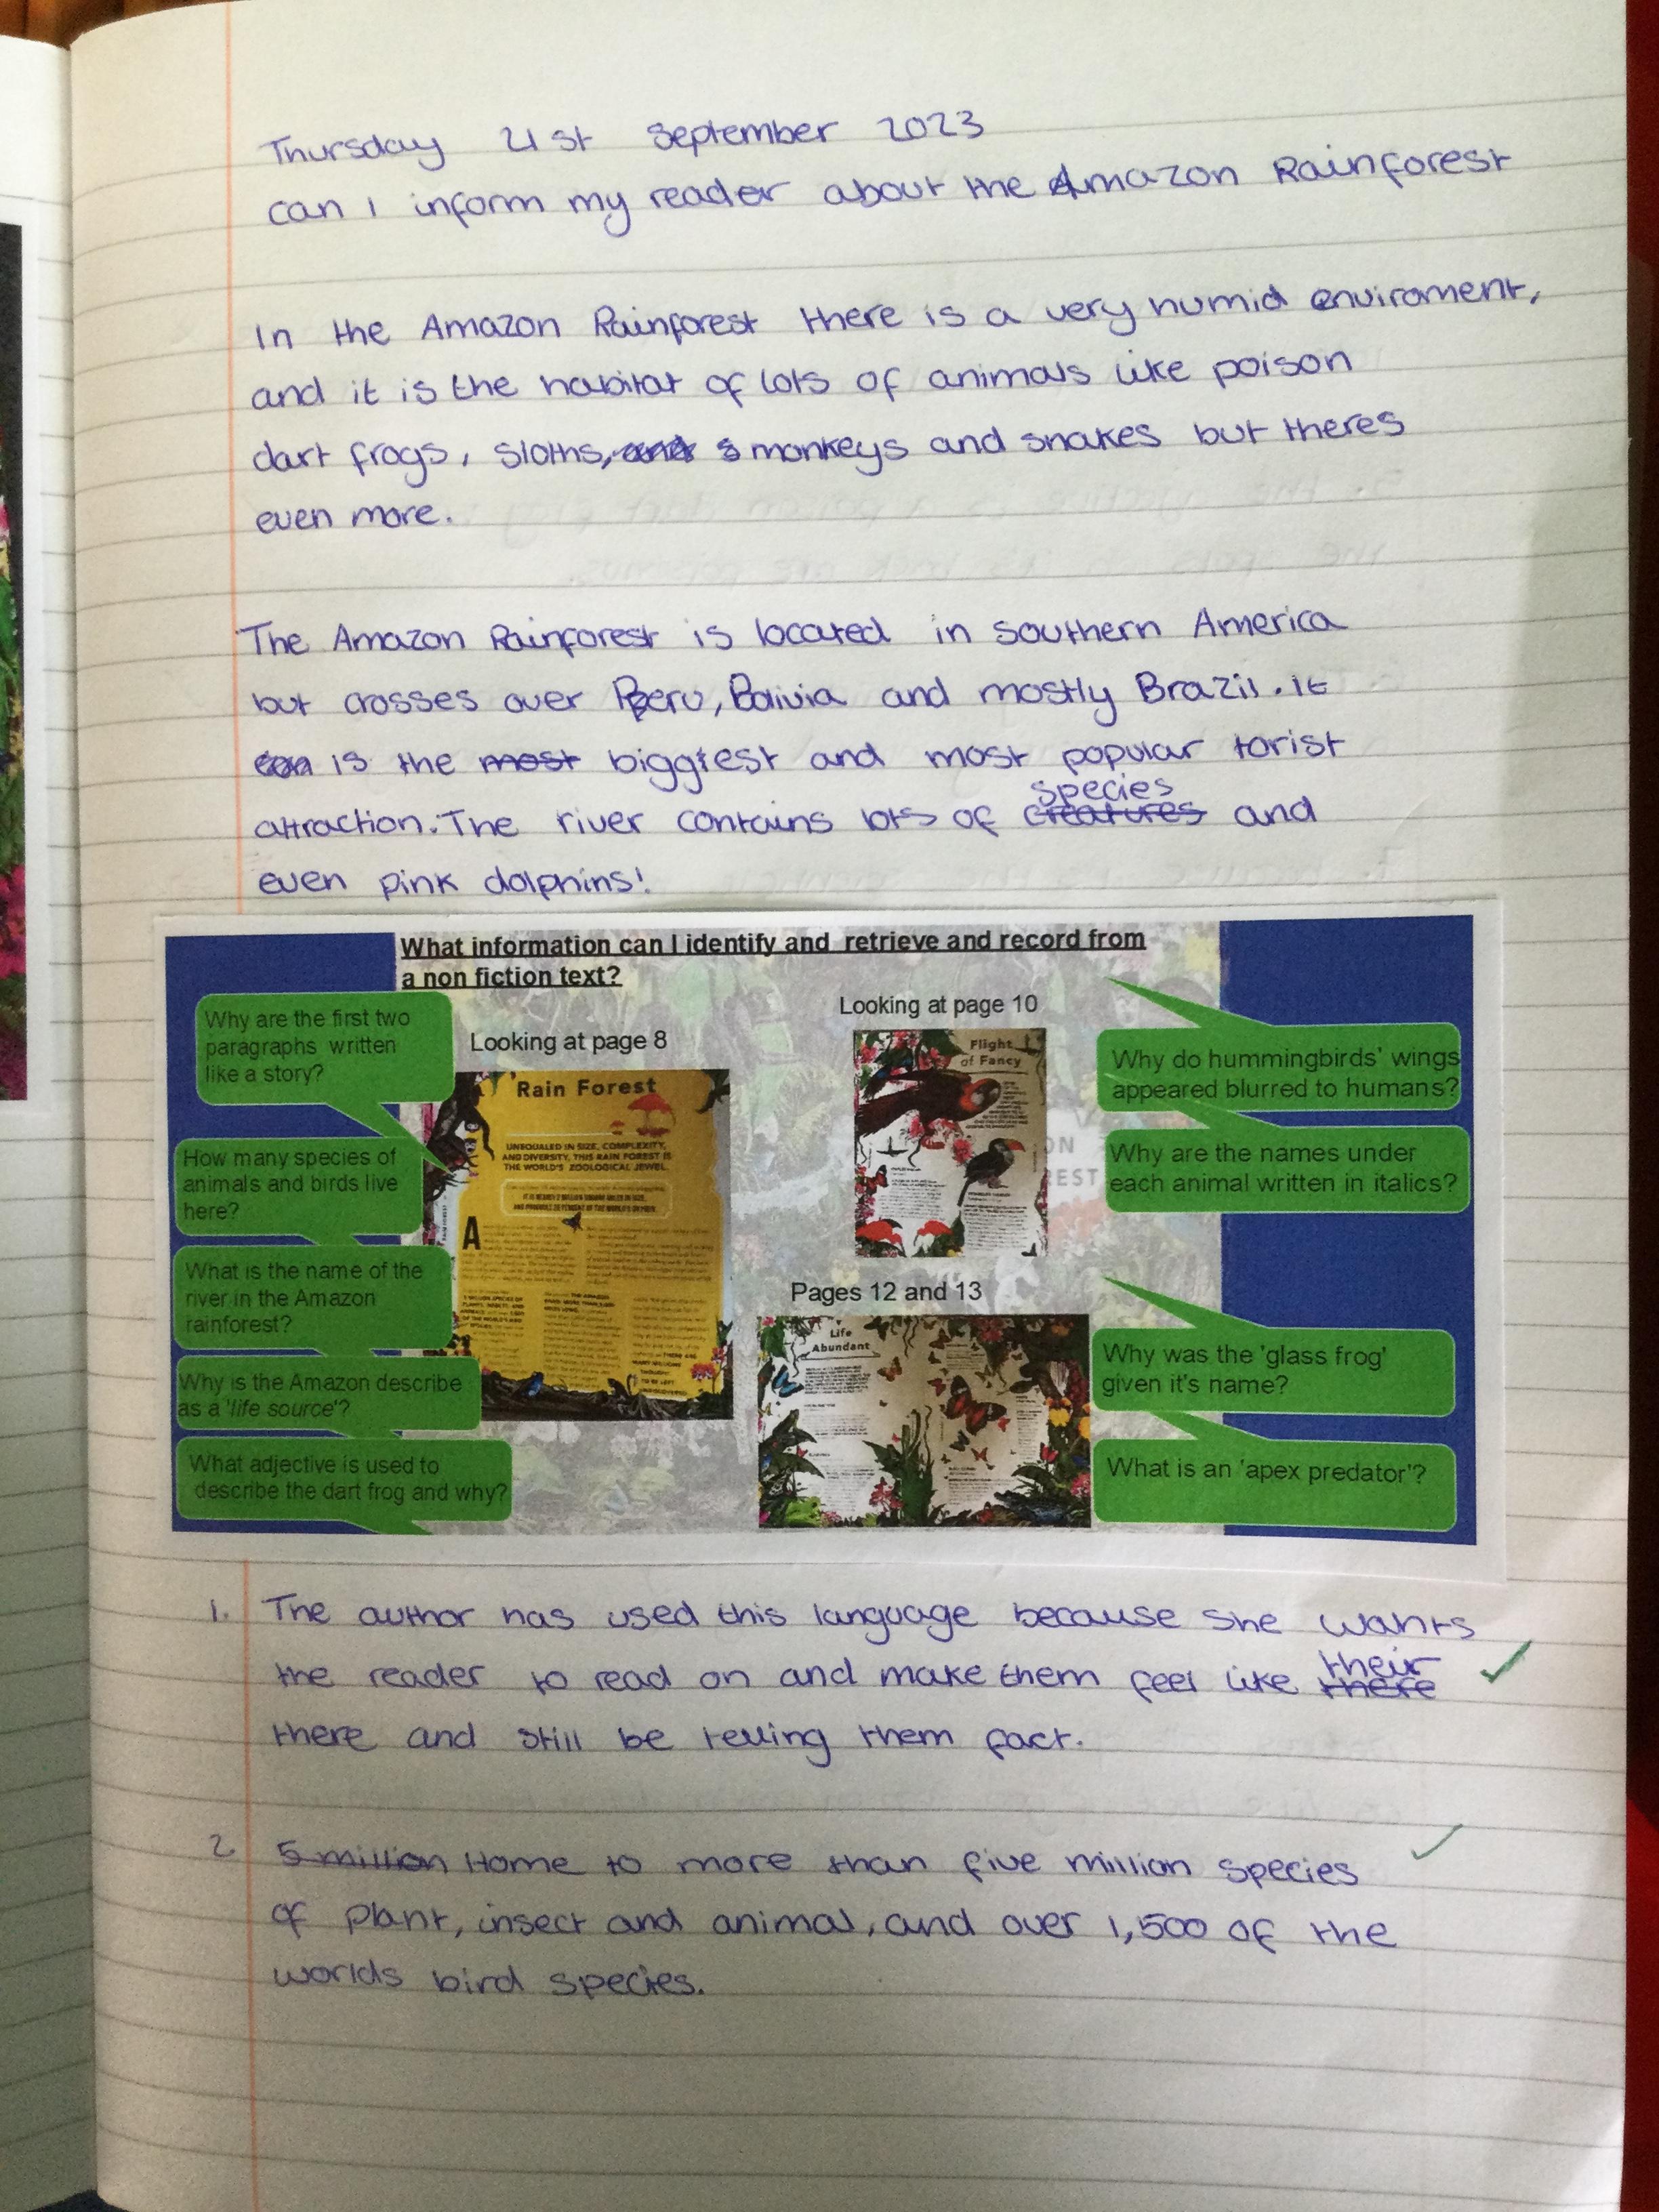 Thursday 21st September 2023
can i inform my reader about the Amazon Rainforest
In the Amazon Rainforest there is a very humid enviroment,
and it is the habitat of lots of animals like poison
dart frogs, sloths, and s monkeys and snakes but theres
even more.
The Amazon Rainforest is located in southern America
but crosses over Peru, Bolivia and mostly Brazil. it
can is the most biggest and most popular torist
species
attraction. The river contains lots of creatures and
even pink dolphins!
What information can I identify and retrieve and record from
a non fiction text?
Looking at page 8
Why are the first two
paragraphs written
like a story?
How many species of
animals and birds live
here?
What is the name of the
river in the Amazon
rainforest?
Why is the Amazon describe
as a 'life source'?
What adjective is used to
describe the dart frog and why?
Rain Forest
UNEQUALED IN SIZE, COMPLEXITY,
AND DIVERSITY, THIS RAIN FOREST IS
THE WORLD'S ZOOLOGICAL JEWEL.
A
Looking at page 10
Flight
of Fancy
Why do hummingbirds' wings
appeared blurred to humans?
Why are the names under
each animal written in italics?
Pages 12 and 13
Life
Abundant
Why was the 'glass frog'
given it's name?
What is an 'apex predator'?
1. The author has used this language because she wants
their
the reader to read on and make them feel like there
there and still be telling them fact.
2 5 million Home to more than five million species
of plant, insect and animal, and over 1,500 of the
worlds bird species.